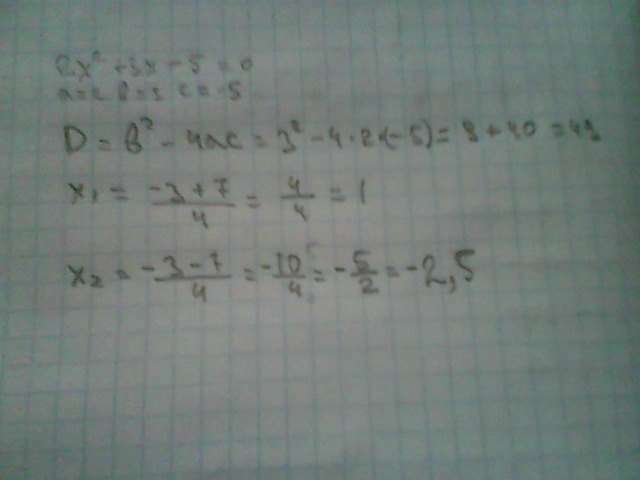 2x² + 3x - 5 = 0
a = 2 b = 3 c = -5
D = b² - 4ac = 3² - 4 · 2 · (-5) = 9 + 40 = 49
x₁ = \frac{-3+7}{4} = \frac{4}{4} = 1
x₂ = \frac{-3-7}{4} = \frac{-10}{4} = -\frac{5}{2} = -2,5